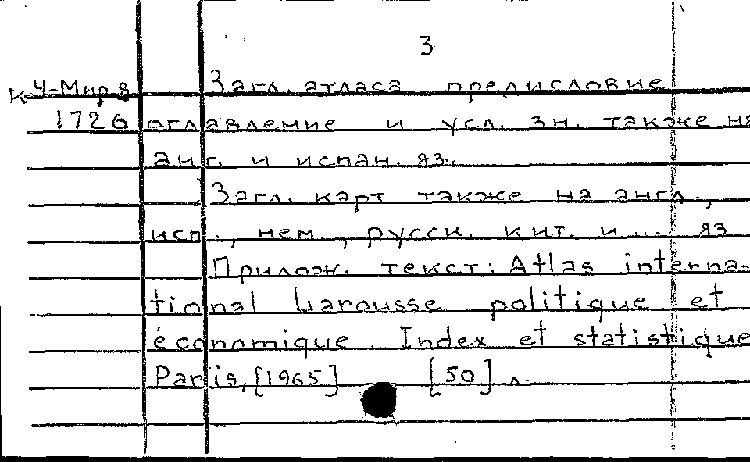 3
К 4-Мир 8 Загл. атласа предисловие
1726 оглавление и усл. зн. также на
анг. и испан. яз.
Загл. карт также на англ.,
исп., нем., русск. кит. и ... яз
Прилож. текст: Atlas interna-
tional Larousse politique et
économique. Index et statistique
Paris, [1965] [50] л.